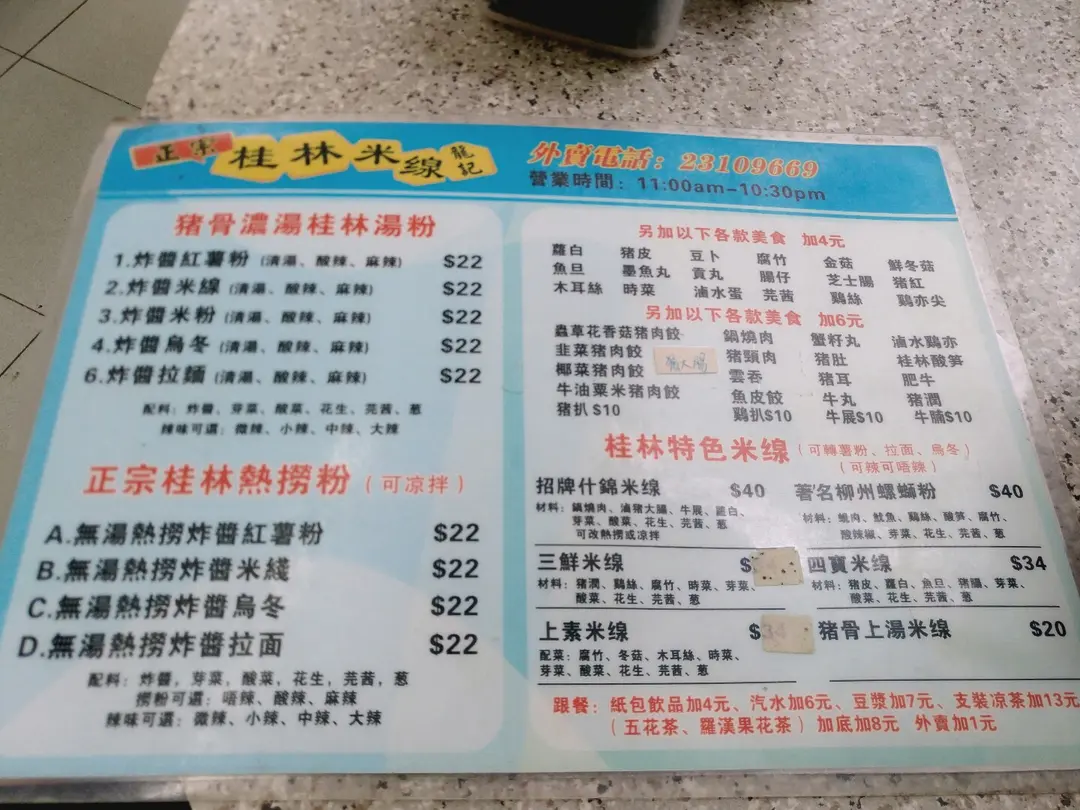 正宗 桂林米線 龍記
外賣電話：23109669
營業時間：11:00am-10:30pm
猪骨濃湯桂林湯粉
1.炸醬紅薯粉（清湯、酸辣、麻辣） $22
2.炸醬米線（清湯、酸辣、麻辣） $22
3.炸醬米粉（清湯、酸辣、麻辣） $22
4.炸醬烏冬（清湯、酸辣、麻辣） $22
6.炸醬拉麵（清湯、酸辣、麻辣） $22
配料：炸醬、芽菜、酸菜、花生、芫茜、葱
辣味可選：微辣、小辣、中辣、大辣
正宗桂林熱撈粉（可凉拌）
A.無湯熱撈炸醬紅薯粉 $22
B.無湯熱撈炸醬米綫 $22
C.無湯熱撈炸醬烏冬 $22
D.無湯熱撈炸醬拉面 $22
配料：炸醬，芽菜，酸菜，花生，芫茜，葱
撈粉可選：唔辣、酸辣、麻辣
辣味可選：微辣、小辣、中辣、大辣
另加以下各款美食 加4元
蘿白 猪皮 豆卜 腐竹 金菇 鮮冬菇
魚旦 墨魚丸 貢丸 腸仔 芝士腸 猪紅
木耳絲 時菜 滷水蛋 芫茜 鷄絲 鷄亦尖
另加以下各款美食 加6元
蟲草花香菇猪肉餃 鍋燒肉 蟹籽丸 滷水鷄亦
韭菜猪肉餃 猪頸肉 猪肚 桂林酸笋
椰菜猪肉餃 雲吞 猪耳 肥牛
牛油粟米猪肉餃 魚皮餃 牛丸 猪潤
猪扒$10 鷄扒$10 牛展$10 牛腩$10
桂林特色米线（可轉薯粉、拉面、烏冬）
（可辣可唔辣）
招牌什錦米线 $40
材料：鍋燒肉、滷猪大腸、牛展、蘿白、
芽菜、酸菜、花生、芫茜、葱
可改熱撈或凉拌
著名柳州螺螄粉 $40
材料：燒肉、魷魚、鷄絲、酸笋、腐竹、
酸辣椒、芽菜、花生、芫茜、葱
三鮮米线 $
材料：猪潤、鷄絲、腐竹、時菜、芽菜、
酸菜、花生、芫茜、葱
四寶米线 $34
材料：猪皮、蘿白、魚旦、猪腸、芽菜、
酸菜、花生、芫茜、葱
上素米线 $34
配菜：腐竹、冬菇、木耳絲、時菜、
芽菜、酸菜、花生、芫茜、葱
猪骨上湯米线 $20
跟餐：紙包飲品加4元、汽水加6元、豆漿加7元、支裝凉茶加13元
（五花茶、羅漢果花茶）加底加8元 外賣加1元